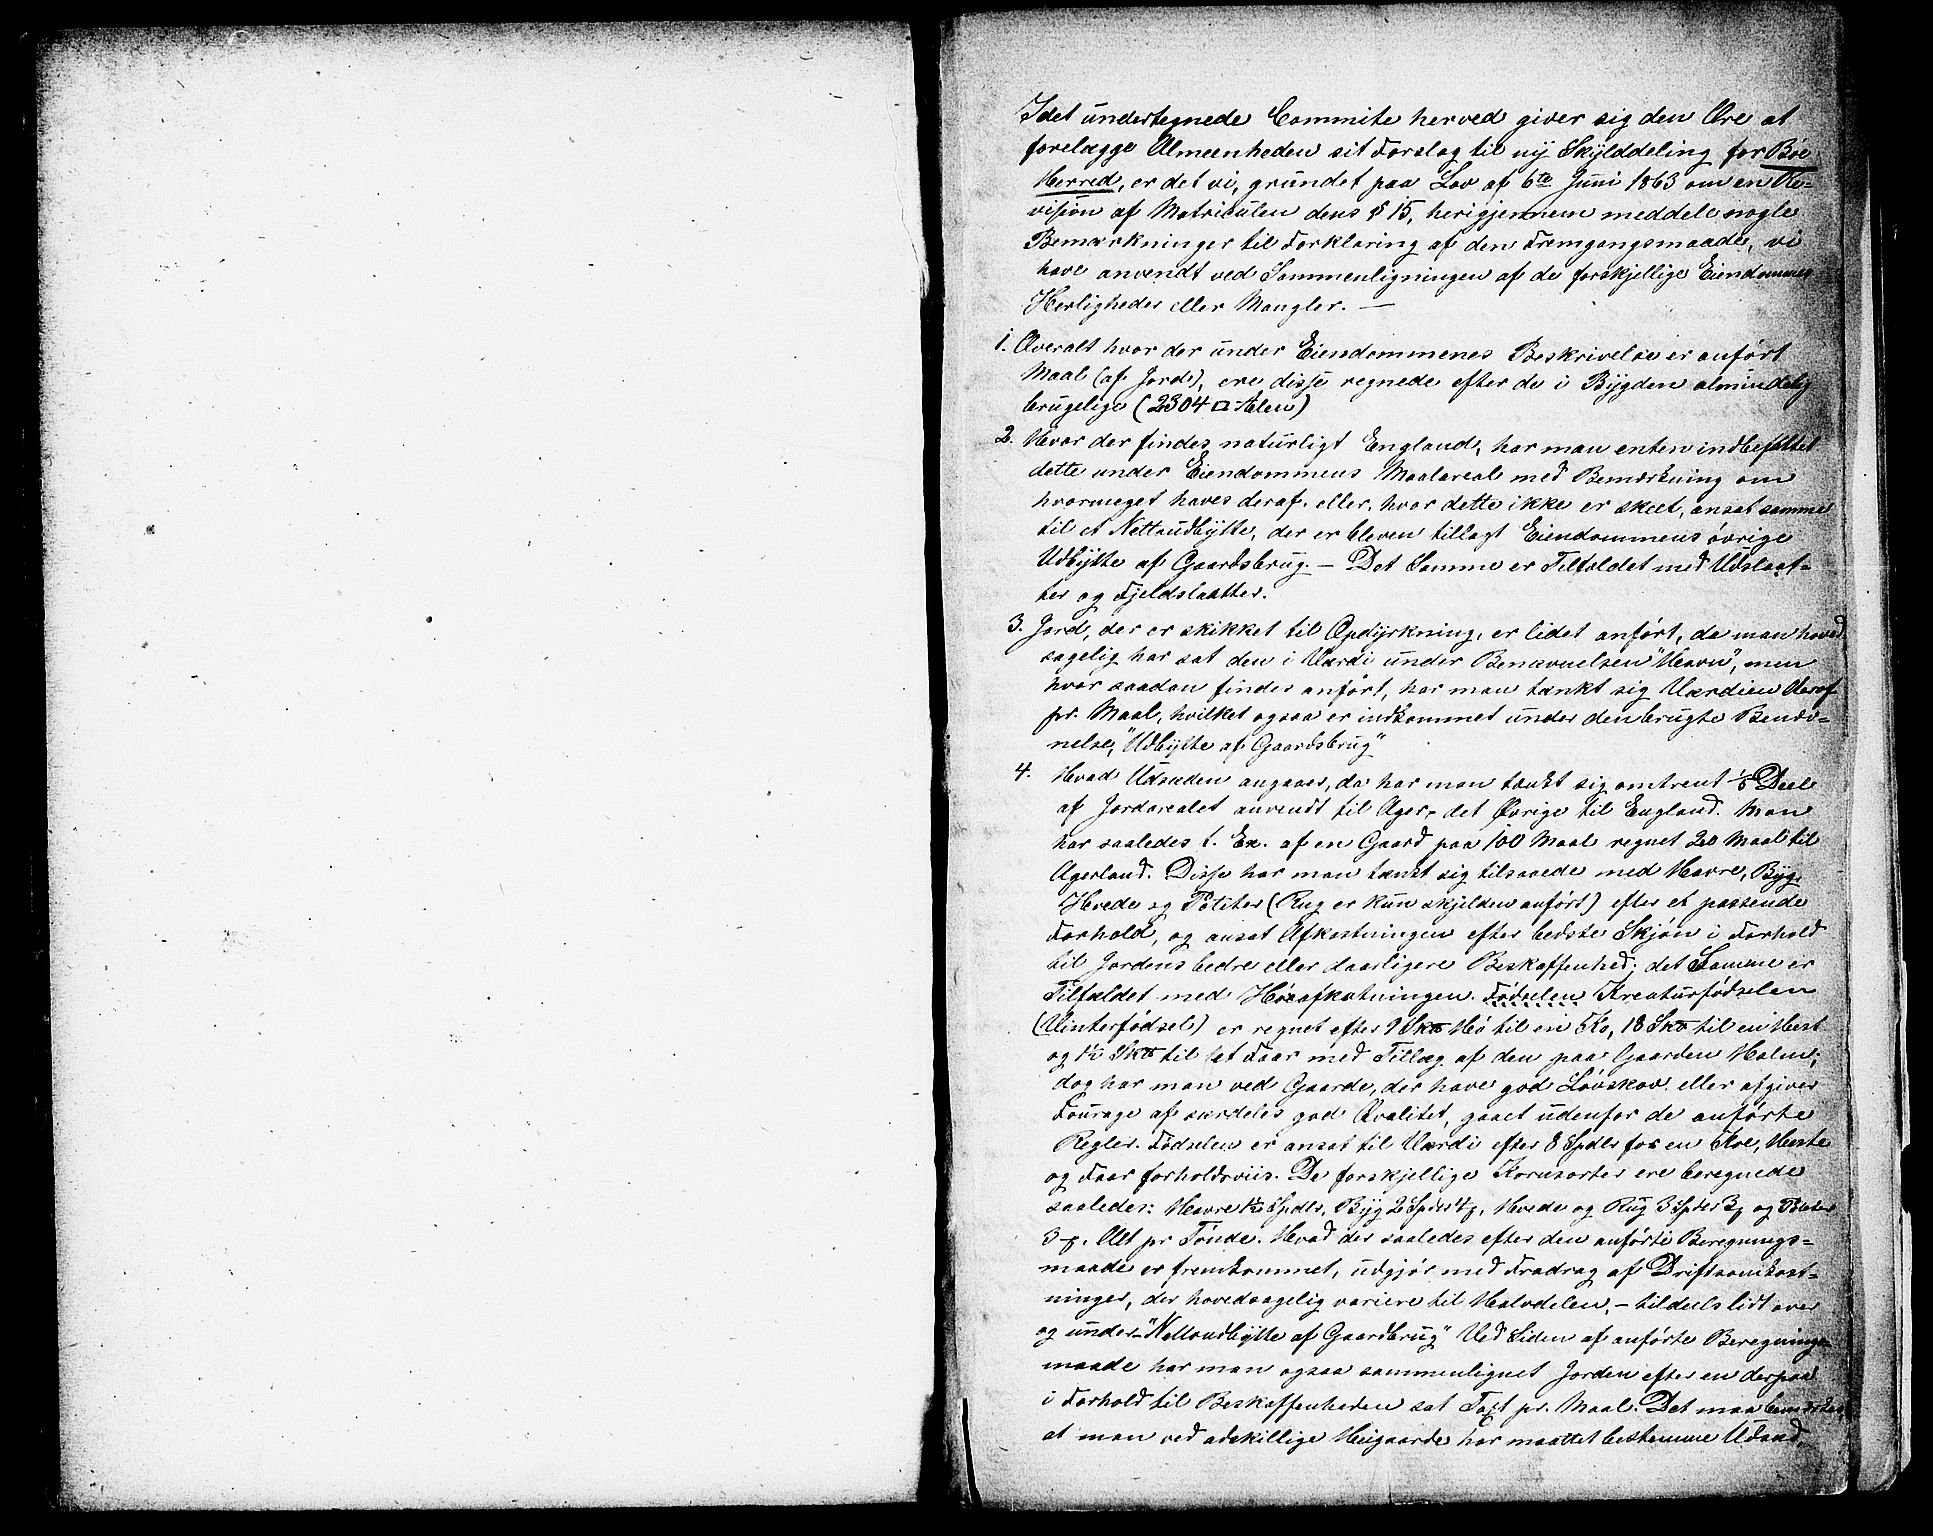 Idet undertegnede Commite herved giver sig den Ære at
forelægge Almeenheden sit Forslag til ny Skylddeling for Bøe
Herred, er det vi, grundet paa Lov af 6te Juni 1863 om en Re-
vision af Matriculen dens § 15, herigjennem meddele nogle
Bemærkninger til Forklaring af den Fremgangsmaade, vi
have anvendt ved Sammenligningen af de forskjellige Eiendommes
Herligheder eller Mangler. —
1. Overalt hvor der under Eiendommenes Beskrivelse er anført
Maal (af Jord), ere disse regnede efter de i Bygden almindelig
brugelige (2304 □ Alen)
2. Hvor der findes naturligt England, har man enten indbefattet
dette under Eiendommens Maalareal med Bemærkning om
hvormeget haves deraf, eller, hvor dette ikke er skeet, ansat samme
til et Nettoudbytte, der er bleven tillagt Eiendommens øvrige
Udbytte af Gaardsbrug. — Det Samme er Tilfældet med Udslaat-
ter og Fjeldslaatter.
3. Jord, der er skikket til Opdyrkning, er lidet anført, da man hoved-
sagelig har sat den i Værdi under Benævnelsen "Havn", men
hvor saadan findes anført, har man tænkt sig Værdien deraf
pr. Maal, hvilket ogsaa er indkommet under den brugte Benæv-
nelse, "Udbytte af Gaardsbrug"
4. Hvad Udsæden angaaer, da har man tænkt sig omtrent 1/5 Deel
af Jordarealet anvendt til Ager, det Øvrige til England. Man
har saaledes t. Ex. af en Gaard paa 100 Maal regnet 20 Maal til
Agerland. Disse har man tænkt sig tilsaaede med Havre, Byg,
Hvede og Poteter (Rug er kun skjelden anført) efter et passende
Forhold, og ansat Afkastningen efter bedste Skjøn i Forhold
til Jordens bedre eller daarligere Beskaffenhed; det Samme er
Tilfældet med Høeafkastningen. Fødselen Kreaturfødselen
(Vinterfødsel) er regnet efter 9 Sk℔ Hø til en Ko, 18 Sk℔ til en Hest
og 1½ Sk℔ til et Faar med Tillæg af den paa Gaarden Halm;
dog har man ved Gaarde, der have god Løvskov eller afgiver
Fourage af særdeles god Qvalitet, gaaet udenfor de anførte
Regler. Fødselen er ansat til Værdi efter 8 Spdlr for en Koe, Heste
og Faar forholdsviis. De forskjellige Kornsorter ere beregnede
saaledes: Havre 1½ Spdlr, Byg 2 Spdlr, Hvede og Rug 3 Spdlr og Poteter
3 . Alt pr Tønde. Hvad der saaledes efter den anførte Beregnings-
maade er fremkommet, udgjør med Fradrag af Driftsomkost-
ninger, der hovedsagelig variere til Halvdelen, — tildeels lidt over
og under — "Nettoudbytte af Gaardbrug" Ved Siden af anførte Beregnings-
maade har man ogsaa sammenlignet Jorden efter en derpaa
i Forhold til Beskaffenheden sat Taxt pr. Maal. Det maa bemærkes,
at man ved adskillige Heigaarde har maattet bestemme Udsæd,